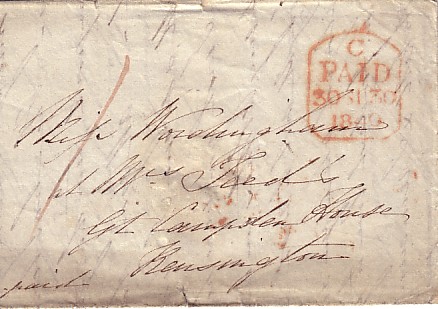 C
PAID
30 JU 30
1840
Miss Wordingham
at Mrs Teed's
Gt Campden House
Kensington
paid